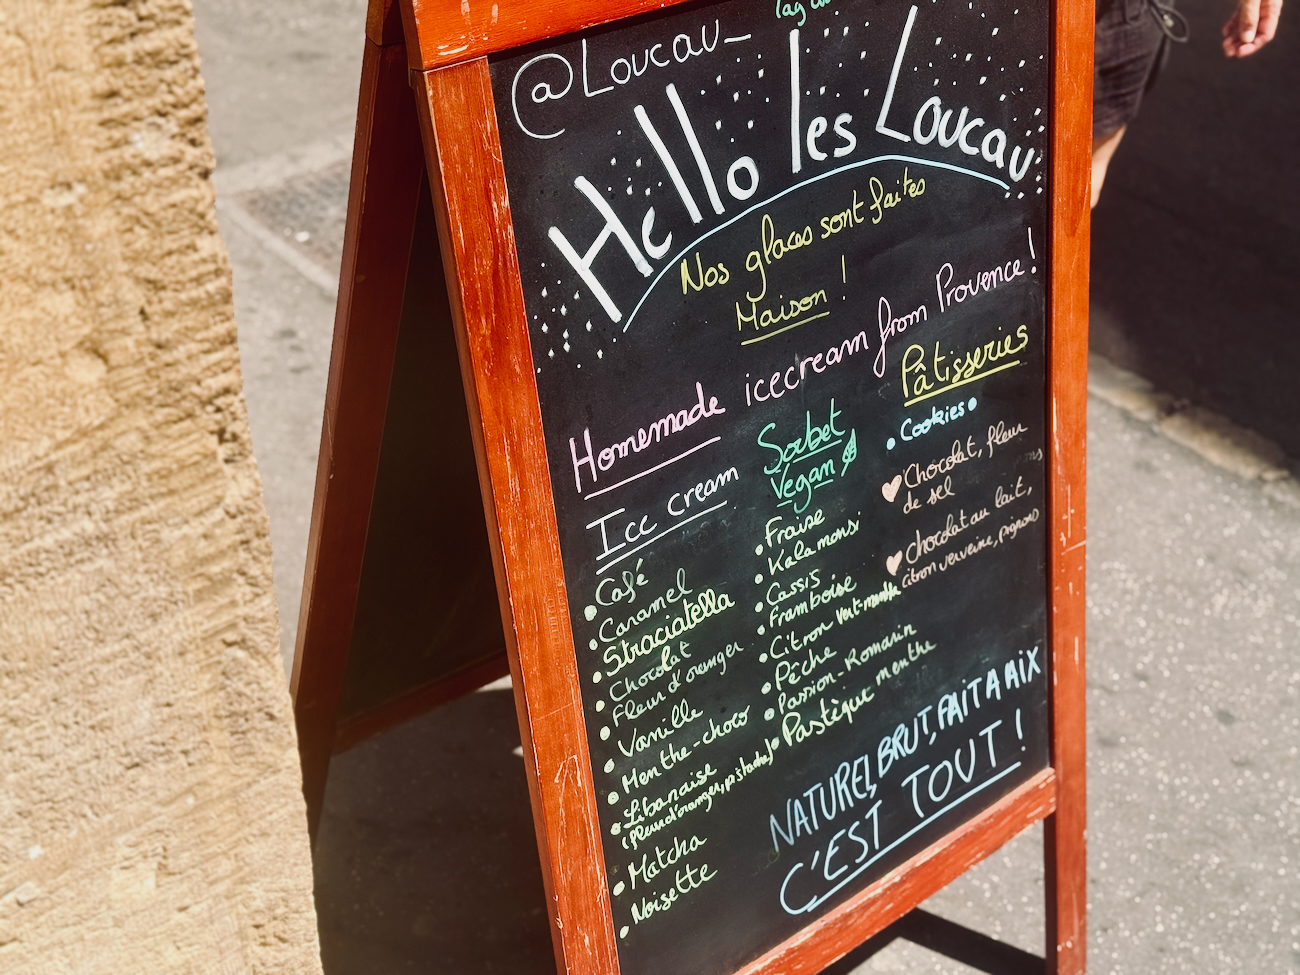 @Loucau_
Hello les Loucau
Nos glaces sont faites
Maison !
Homemade icecream from Provence !
Ice cream
Café
Caramel
Straciatella
Chocolat
Fleur d'oranger
Vanille
Menthe-choco
Libanaise
(fleur d'oranger, pistache)
Matcha
Noisette
Sorbet
Végan
Fraise
Kalamonsi
Cassis
Framboise
Citron vert-menthe
Pêche
Passion-Romarin
Pastèque menthe
Pâtisseries
Cookies
Chocolat, fleur
de sel
chocolat au lait,
citron verveine, pignons
NATUREL, BRUT, FAIT A AIX
C'EST TOUT !